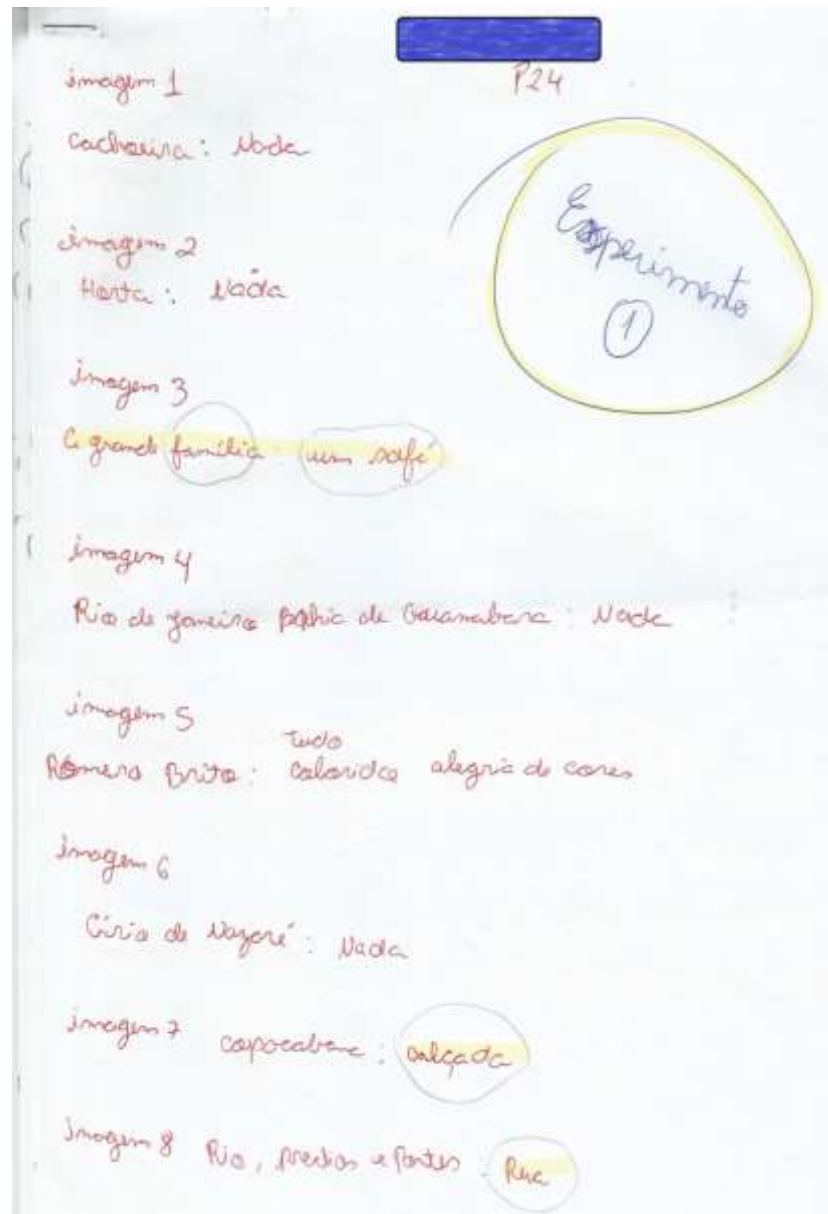 P24
imagem 1
Cachoeira: Nada
Experimento
1
imagem 2
Horta: Nada
imagem 3
A grande família um sofá
imagem 4
Rio de janeiro Bahia de Guanabara: Nada
imagem 5
tudo
Romero Brito: colorido alegria de cores
imagem 6
Círio de Nazaré: Nada
imagem 7 copacabana: calçada
imagem 8 Rio, predios e pontes: Rua